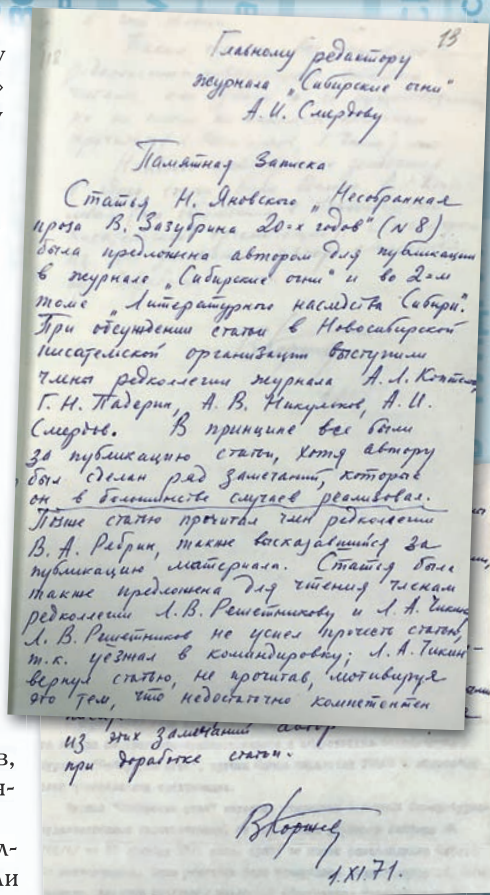 13
Главному редактору
журнала „Сибирские огни“
А.И. Смердову
Памятная Записка
Статья Н. Яновского „Несобранная
проза В. Зазубрина 20=х годов“ (N 8)
была предложена автором для публикации
в журнале „Сибирские огни“ и во 2=м
томе „Литературного наследства Сибири“.
При обсуждении статьи в Новосибирской
писательской организации выступили
члены редколлегии журнала А.Л. Коптелов,
Г.Н. Падерин, А.В. Никульков, А.И.
Смердов. В принципе все были
за публикацию статьи, хотя автору
был сделан ряд замечаний, которые
он в большинстве случаев реализовал.
Позже статью прочитал член редколлегии
В.А. Рябрин, также высказавшийся за
публикацию материала. Статья была
также предложена для чтения членам
редколлегии Л.В. Решетникову и Л.А. Чикину.
Л.В. Решетников не успел прочесть статью,
т.к. уезжал в командировку; Л.А. Чикин
вернул статью, не прочитав, мотивируя
это тем, что недостаточно компетентен
из этих замечаний
при доработке статьи.
В Коржев
1.XI.71.